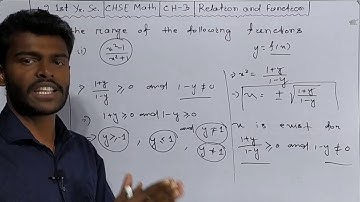 1st Yr. Sc. CHSE Math CH-3 Relation and Function
the range of the following functions
x²-1
x²+1
y = f(x)
1+y/1-y ≥ 0 and 1-y ≠ 0
1+y ≥ 0 and 1-y > 0
y ≥ -1, y < 1 and y ≠ 1
y ≠ 1
x² = 1+y/1-y
x = ± √1+y/1-y
x is exist for
1+y/1-y ≥ 0 and 1-y ≠ 0